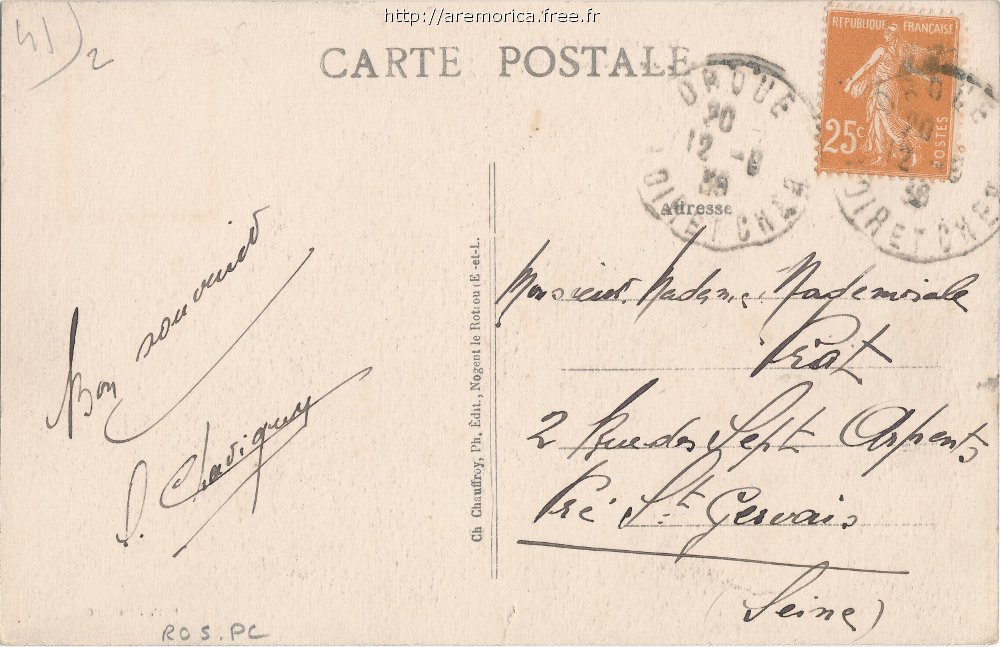 http://aremorica.free.fr
41)2
CARTE POSTALE
RÉPUBLIQUE FRANÇAISE
25c
POSTES
DROUÉ
20
12 - 8
36
LOIR ET CHER
DROUÉ
20
12
36
LOIR ET CHER
Adresse
Bon souvenir
Ch Chauffroy, Ph. Édit., Nogent le Rotrou (E.-et-L.
Monsieur, Madame, Mademoisale
2 Rue des Sept Arpents
Pré St Gervais
(Seine)
ROS.PC